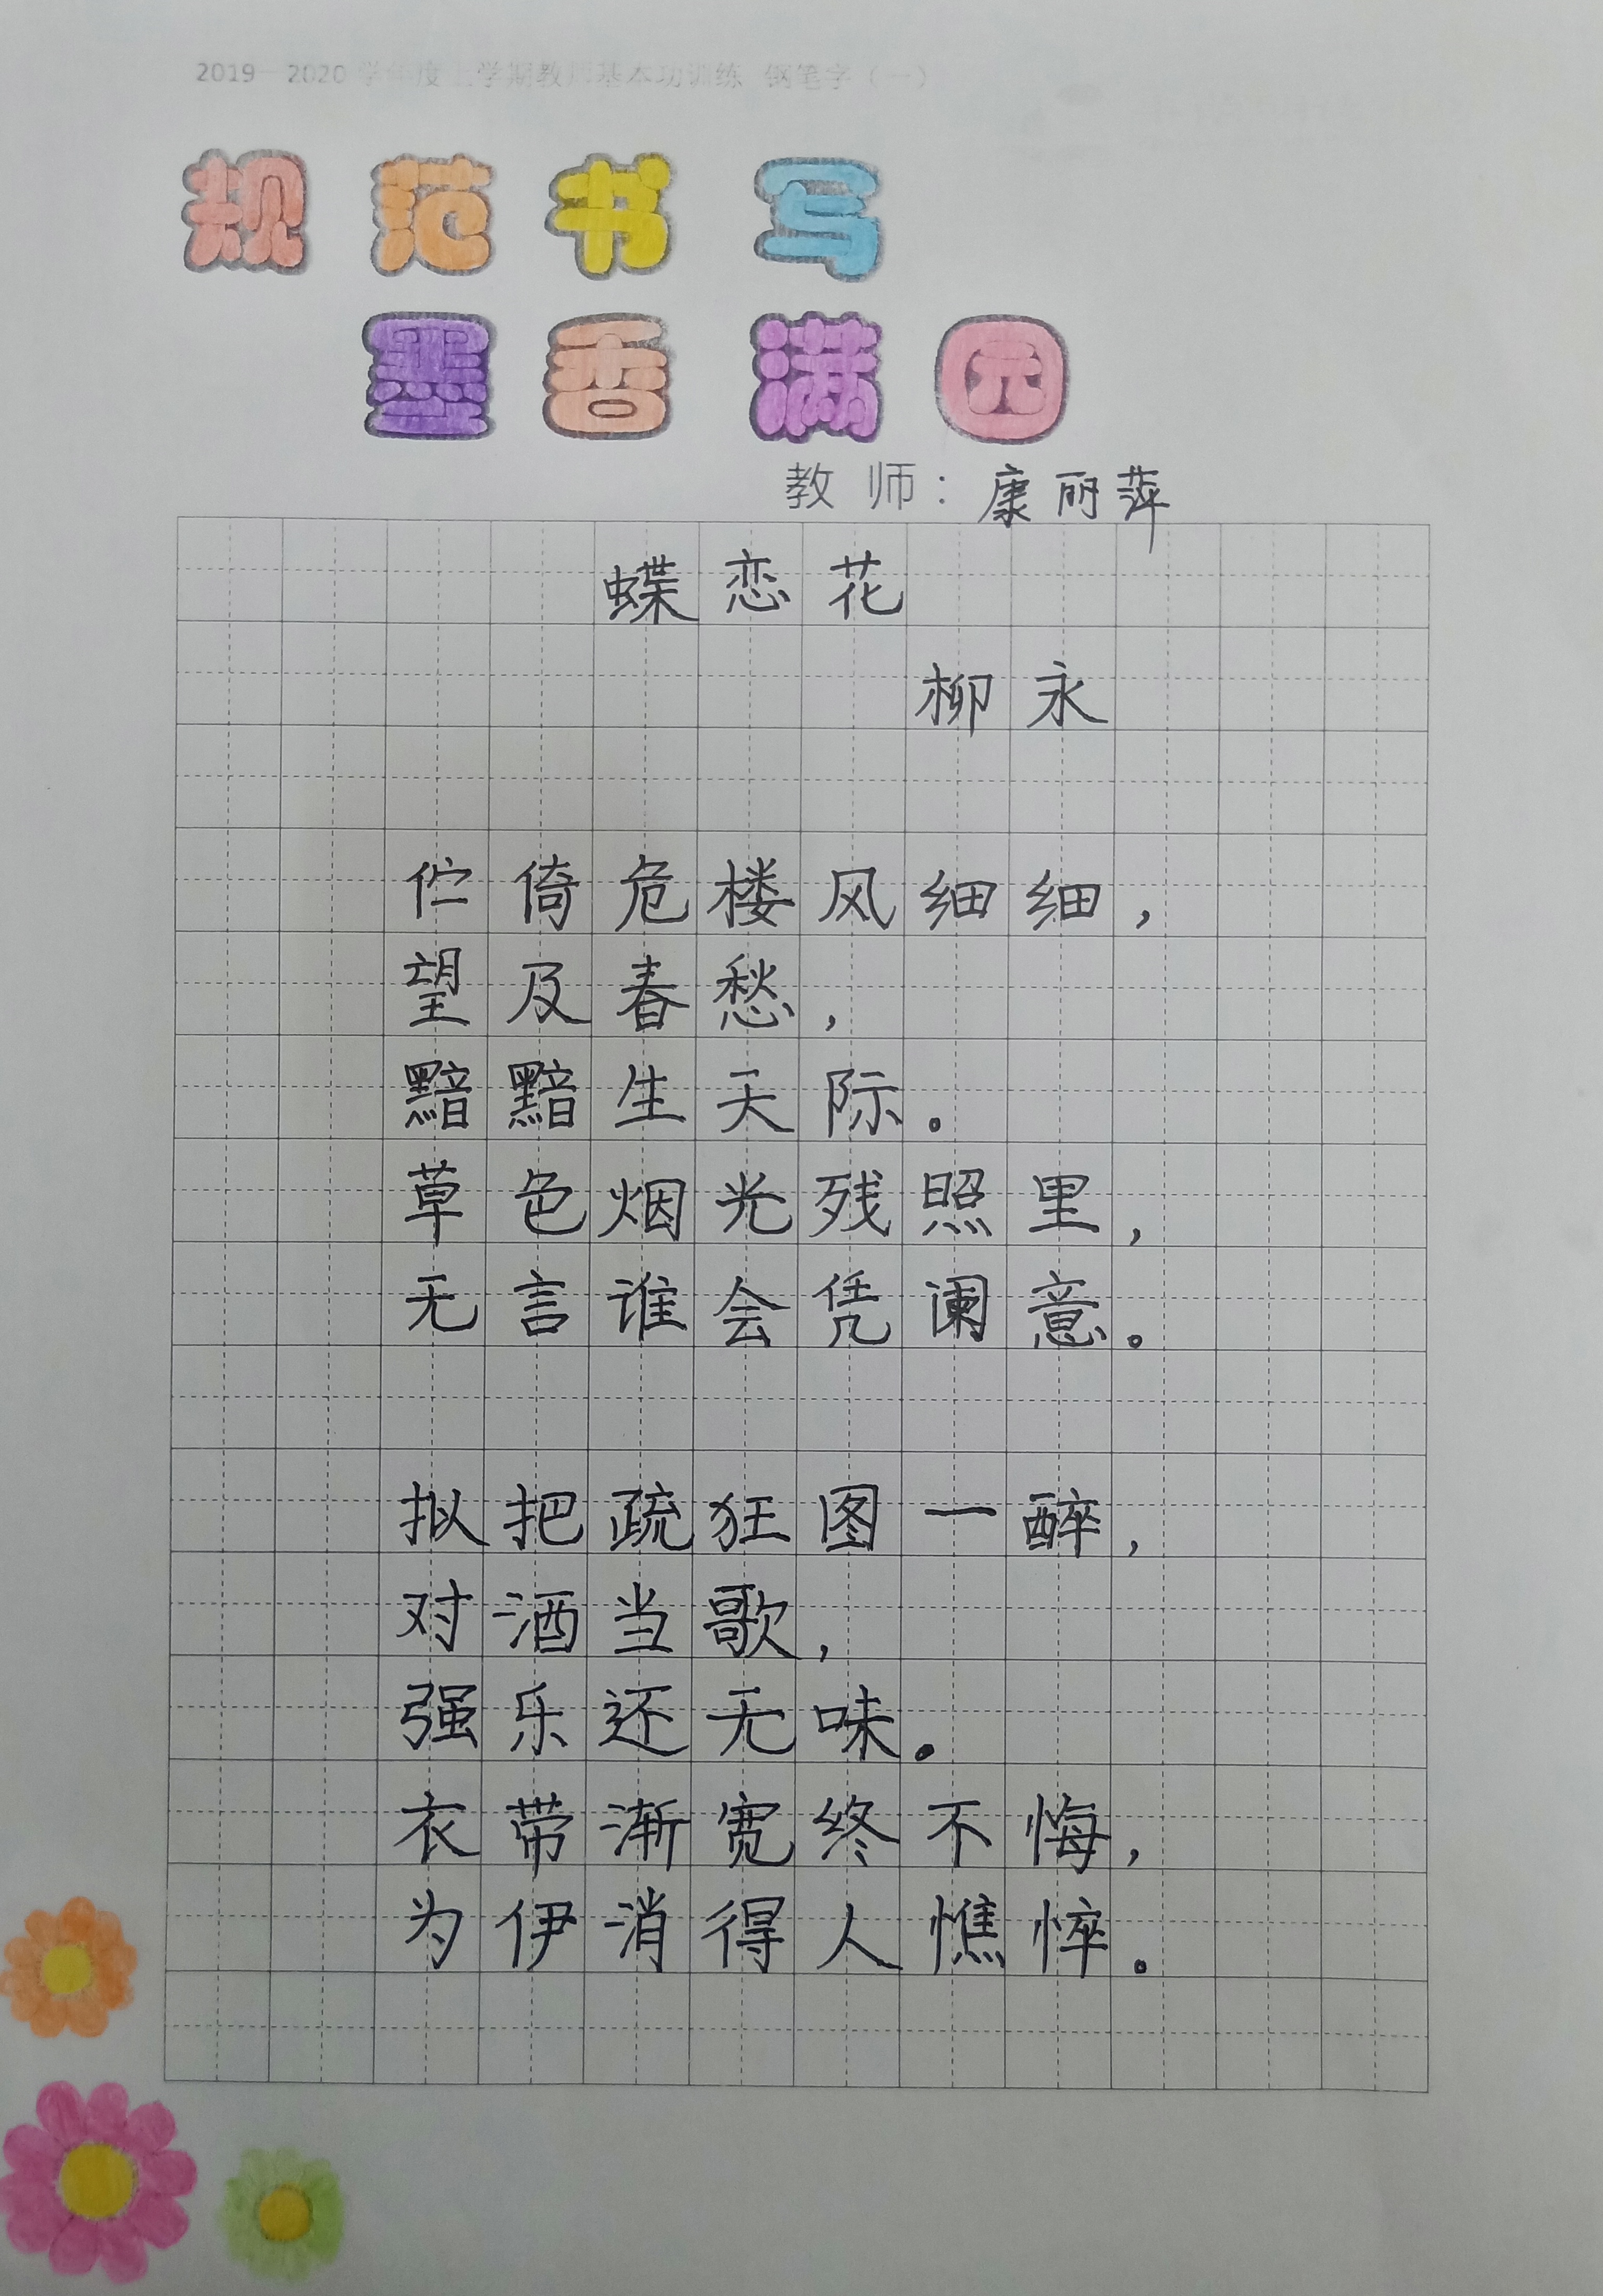 2019—2020学年度上学期教师基本功训练 钢笔字（一）
规范书写
墨香满园
教师：康丽萍
蝶恋花
柳永
伫倚危楼风细细，
望及春愁，
黯黯生天际。
草色烟光残照里，
无言谁会凭阑意。
拟把疏狂图一醉，
对酒当歌，
强乐还无味。
衣带渐宽终不悔，
为伊消得人憔悴。